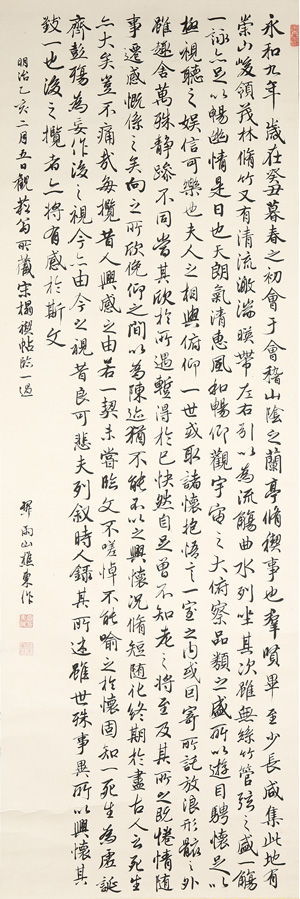 永和九年歲在癸丑暮春之初會于會稽山陰之蘭亭脩禊事也羣賢畢至少長咸集此地有
崇山峻領茂林脩竹又有清流激湍暎帶左右引以為流觴曲水列坐其次雖無絲竹管弦之盛一觴
一詠亦足以暢幽情是日也天朗氣清惠風和暢仰觀宇宙之大俯察品類之盛所以遊目騁懷足以
極視聽之娛信可樂也夫人之相與俯仰一世或取諸懷抱悟言一室之内或因寄所託放浪形骸之外
雖趣舍萬殊静躁不同當其欣於所遇暫得於己快然自足曾不知老之將至及其所之既惓情隨
事遷感慨係之矣向之所欣俛仰之間以為陳迹猶不能不以之興懷況脩短隨化終期於盡古人云死生
亦大矣豈不痛哉每攬昔人興感之由若一契未嘗臨文不嗟悼不能喻之於懷固知一死生為虛誕
齊彭殤為妄作後之視今亦由今之視昔良可悲夫列叙時人錄其所述雖世殊事異所以興懷其
致一也後之攬者亦將有感於斯文
明治乙亥二月五日觀菘翁所藏宋搨禊帖臨一過
翠雨山樵東作